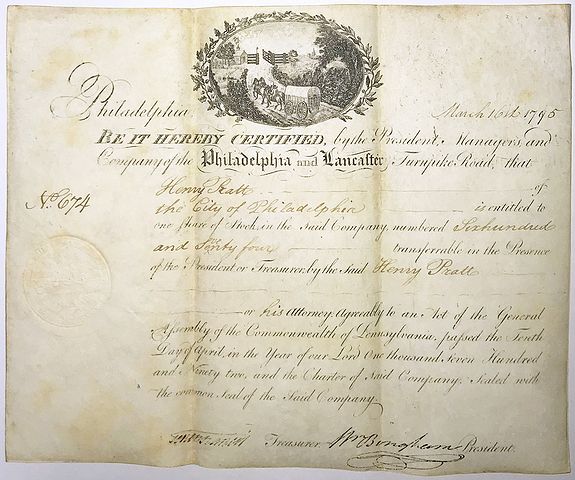 Philadelphia March 16th 1795
BE IT HEREBY CERTIFIED, by the President, Managers and
Company of the Philadelphia and Lancaster Turnpike Road, that
Henry Pratt of
No. 674 the City of Philadelphia is entitled to
one Share of Stock, in the Said Company, numbered Sixhundred
and Seventy four transferrable in the Presence
of the President or Treasurer, by the Said Henry Pratt
or his Attorney. Agreably to an Act of the General
Assembly of the Commonwealth of Pennsylvania, passed the Tenth
Day of April, in the Year of our Lord One thousand Seven Hundred
and Ninety two, and the Charter of Said Company. Sealed with
the common Seal of the Said Company.
Treasurer. Wm Bingham President.